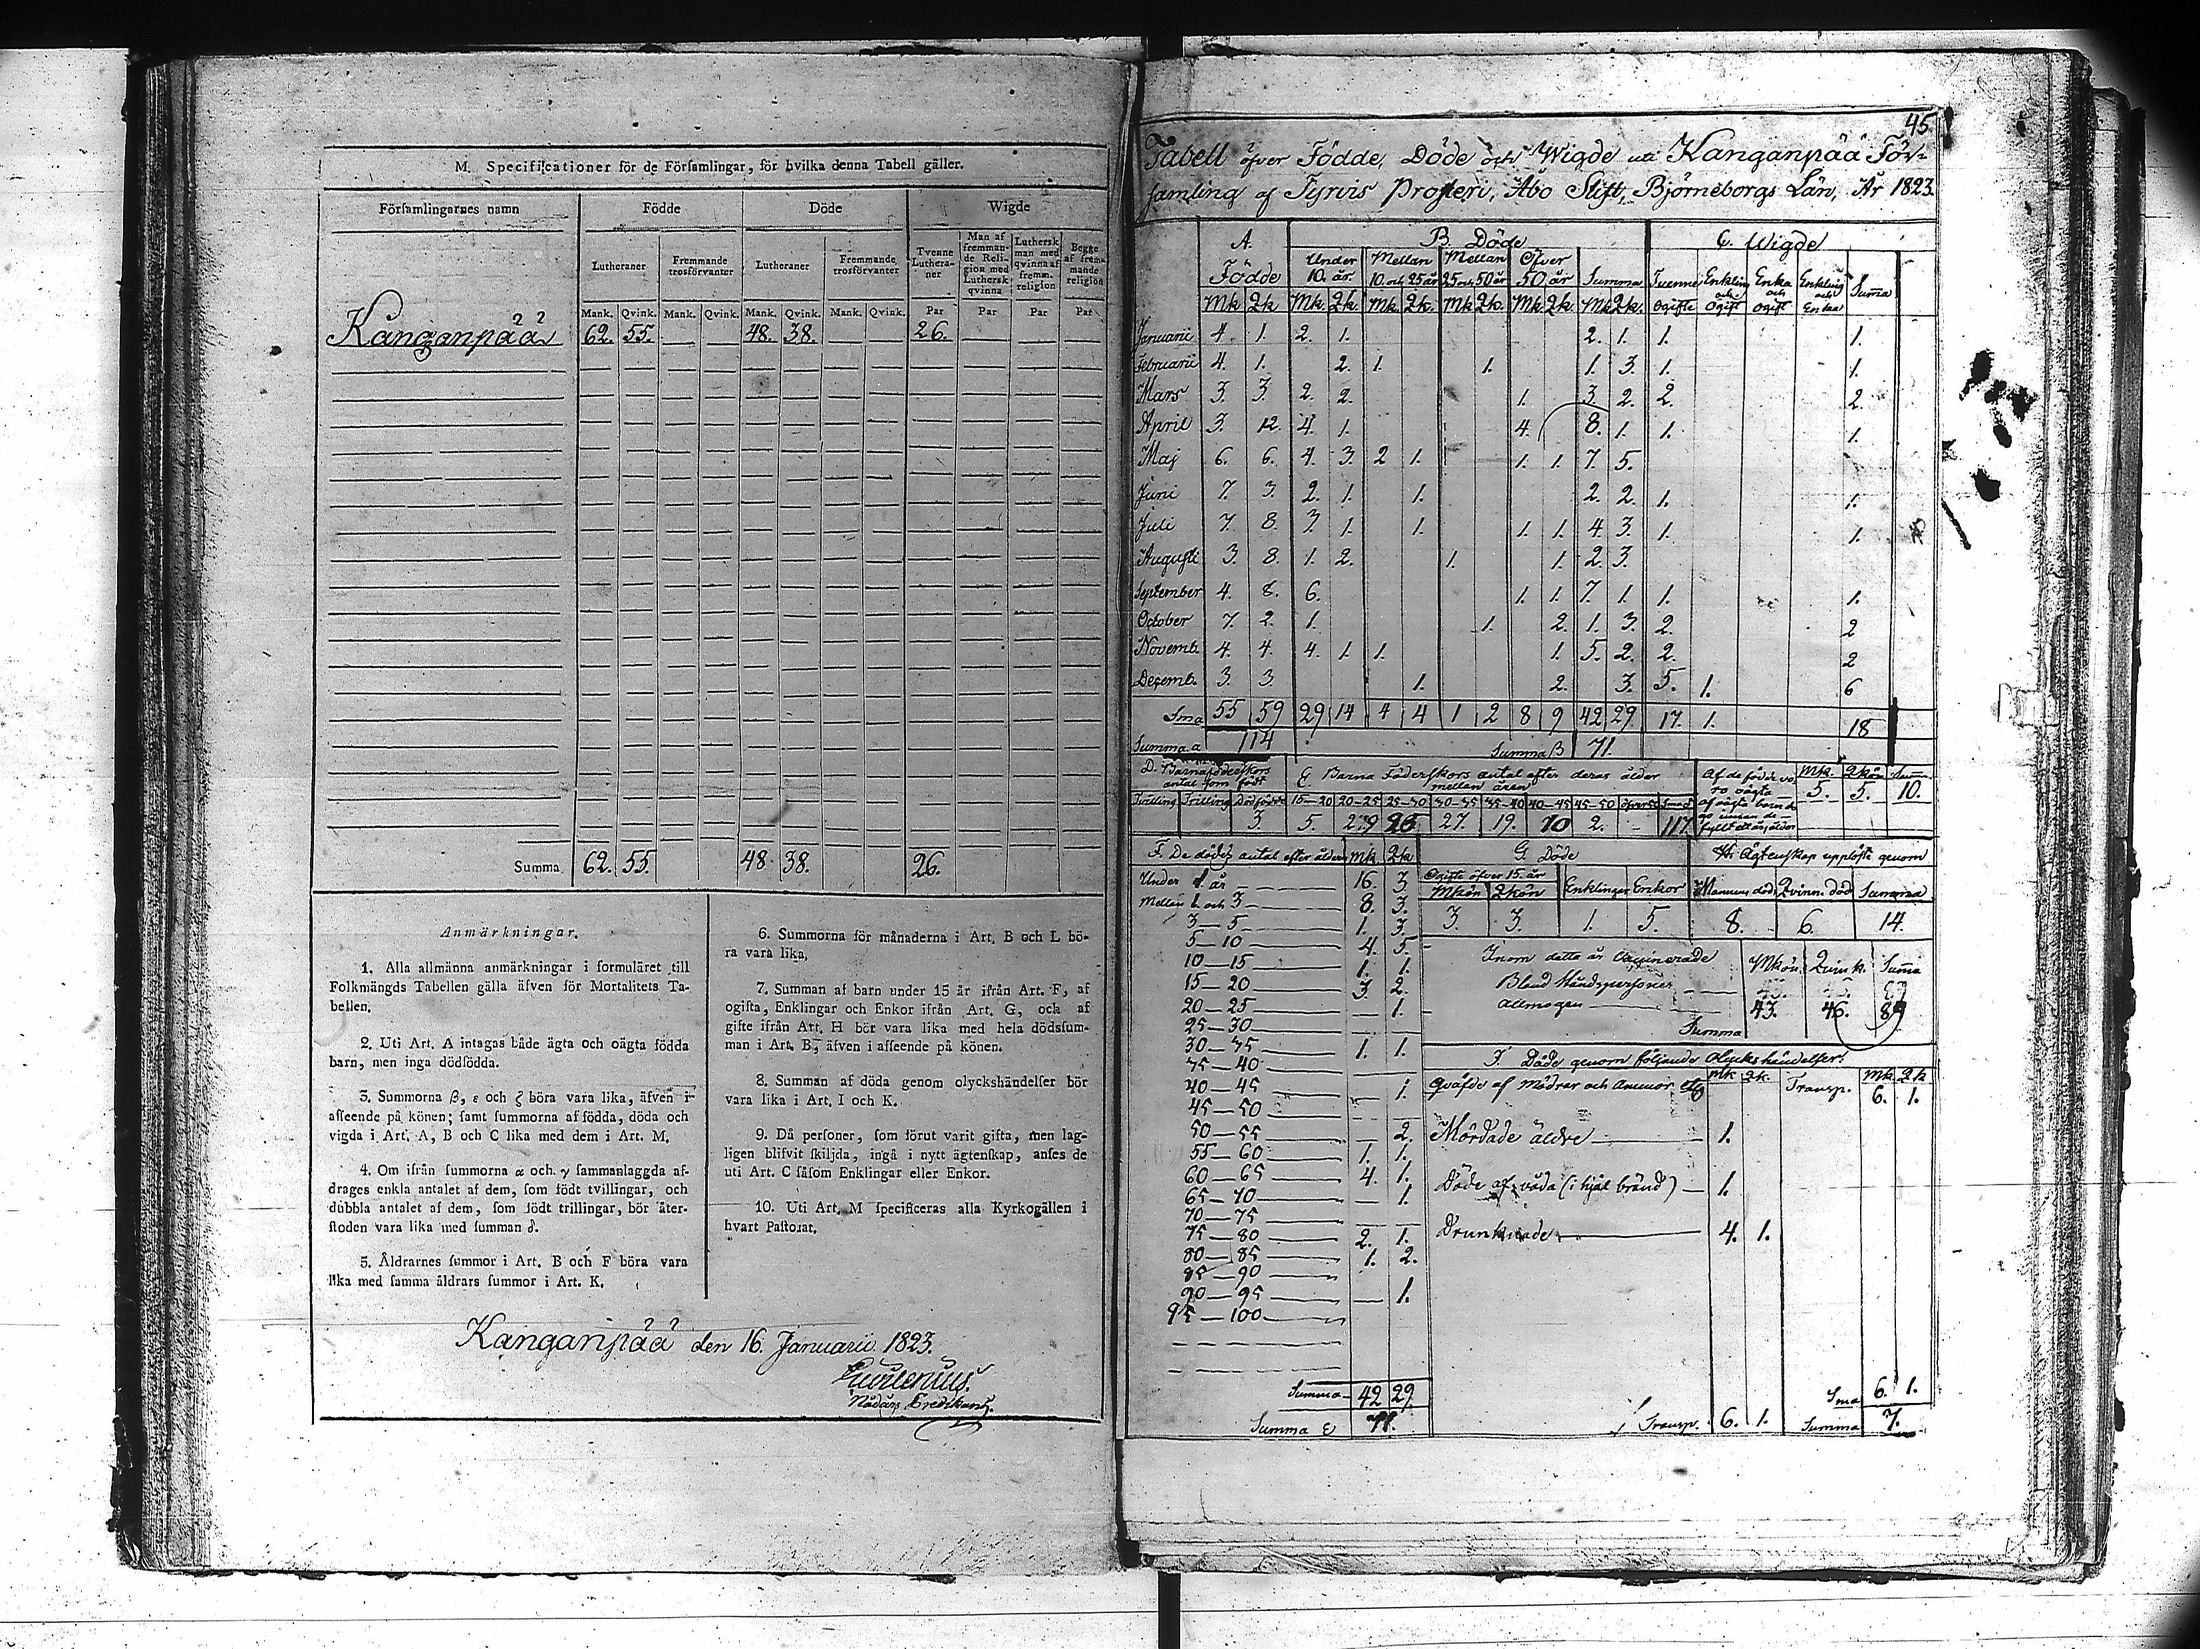 M. Specificationer för de Församlingar, för hvilka denna Tabell gäller.
Församlingarnes namn Födde Döde Wigde
Lutheraner Fremmande trosförvanter Lutheraner Fremmande trosförvanter Tvenne Lutheraner Man af fremmande Religion med Luthersk qvinna Luthersk man med qvinna af fremm. religion Begge af fremmande religion
Mank. Qvink. Mank. Qvink. Mank. Qvink. Mank. Qvink. Par Par Par Par
Kanganpää 62. 55. — — 48. 38. — — 26. — — —
Summa 62. 55. 48 38. 26.
Anmärkningar.
1. Alla allmänna anmärkningar i formuläret till
Folkmängds Tabellen gälla äfven för Mortalitets Ta-
bellen.
2. Uti Art. A intagas både ägta och oägta födda
barn, men inga dödfödda.
3. Summorna β, ε och ζ böra vara lika, äfven i
afseende på könen; samt summorna af födda, döda och
vigda i Art. A, B och C lika med dem i Art. M.
4. Om ifrån summorna α och γ sammanlaggda af-
drages enkla antalet af dem, som födt tvillingar, och
dubbla antalet af dem, som födt trillingar, bör åter-
stoden vara lika med summan δ.
5. Åldrarnes summor i Art. B och F böra vara
lika med samma åldrars summor i Art. K.
6. Summorna för månaderna i Art. B och L bö-
ra vara lika.
7. Summan af barn under 15 år ifrån Art. F, af
ogifta, Enklingar och Enkor ifrån Art. G, och af
gifte ifrån Art. H bör vara lika med hela dödssum-
man i Art. B, äfven i afseende på könen.
8. Summan af döda genom olyckshändelser bör
vara lika i Art. I och K.
9. Då personer, som förut varit gifta, men lag-
ligen blifvit skiljda, ingå i nytt ägtenskap, anses de
uti Art. C såsom Enklingar eller Enkor.
10. Uti Art. M specificeras alla Kyrkogällen i
hvart Pastorat.
Kanganpää den 16. Januarii 1823.
45
Tabell öfver Födde, Döde och Wigde uti Kanganpää För-
samling af Tyrvis Prosteri, Åbo Stift, Björneborgs Län, År 1823.
A. Födde B. Döde C. Wigde
Under 10. år Mellan 10. och 25 år Mellan 25 och 50 år Öfver 50 år Summa Tvenne Ogifte Enkling och Ogift Enka och ogift Enkling och Enka Summa
Mk Qk Mk. Qk. Mk. Qk. Mk Qk. Mk Qk. Mk Qk.
Januarii 4. 1. 2. 1. 2. 1. 1. 1.
Februarii 4. 1. 2. 1. 1. 1. 3. 1. 1.
Mars 3. 3. 2. 2. 1. 3. 2. 2. 2.
April 3. 12. 4. 1. 4. 8. 1. 1. 1.
Maj 6. 6. 4. 3. 2 1. 1. 1. 7. 5.
Juni 7. 3. 2. 1. 1. 2. 2. 1. 1.
Juli 7. 8. 3. 1. 1. 1. 1. 4. 3. 1. 1.
Augusti 3. 8. 1. 2. 1. 1. 2. 3.
September 4. 8. 6. 1. 1. 7. 1. 1. 1.
October 7. 2. 1. 1. 2. 1. 3. 2. 2
Novemb. 4. 4. 4. 1. 1. 1. 5. 2. 2. 2
Decemb. 3. 3. 1. 2. 3. 5. 1. 6
Sma 55 59 29 14 4 4 1 2 8 9 42 29. 17. 1. 18
Summa a 114 Summa B 71.
D. Barnaföderskors antal som födt E Barna Föderskors antal efter deras ålder mellan åren Mk. Qkön
Tvilling Trilling Dödfödde 15—20 20—25 25—30 30—35 35—40 40—45 45—50 5. 5. 10.
3. 5. 29 25. 27. 19. 10 2. 117.
F. De dödes antal efter åldern Mk Qk G. Döde H. Ägtenskap upplöste genom
Ogifte öfver 15. år
Mkön Qkön Enklingar Enkor Mannens död Qvinn. död Summa
3. 3. 1. 5. 8. 6. 14.
Under 1 år 16. 3
Mellan 1. och 3 8. 3.
3—5 1. 3.
5—10 4. 5
10—15 1. 1.
15—20 3. 2.
20—25 — 1.
25—30
30—35 1. 1.
35—40
40—45 — 1.
45—50
50—55 — 2.
55—60 1. 1.
60—65 4. 1.
65—70 — 1.
70—75
75—80 2. 1.
80—85 1. 2.
85—90
90—95 — 1.
95—100
Summa 42 29.
Summa ε 71.
Inom detta år Vaccinerade Mkön Qvink. Summa
Bland Ståndspersoner
Allmogen 43. 46. 89
Summa
I. Döde genom följande Olyckshändelser.
Mk Qk. Transp. Mk. Qk
Qväfde af Mödrar och Ammor 6. 1.
Mördade äldre 1.
Döde af våda 1.
Drunknade 4. 1.
Sma 6. 1.
Transp. 6. 1. Summa 7.